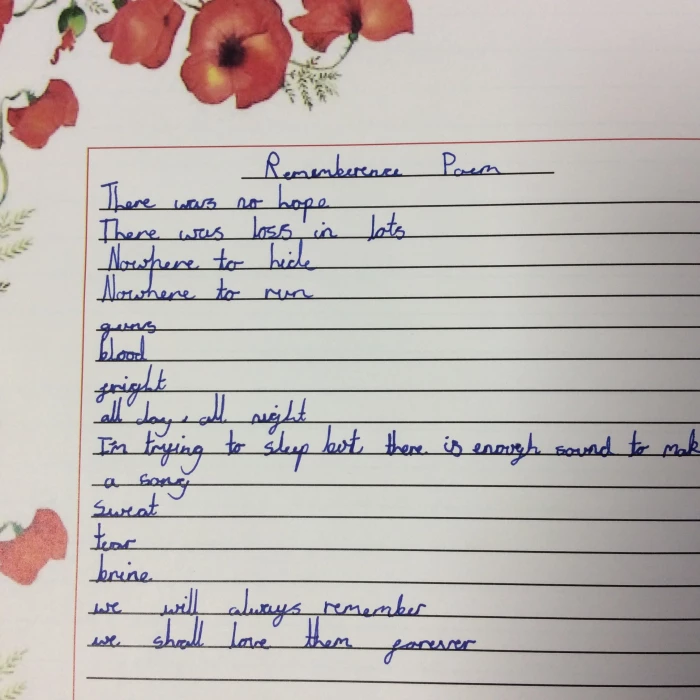 Rememberence Poem
There was no hope
There was loss in lots
Nowhere to hide
Nowhere to run
guns
blood
fright
all day, all night
I'm trying to sleep but there is enough sound to mak
a song
sweat
tear
brine
we will always remember
we shall love them forever